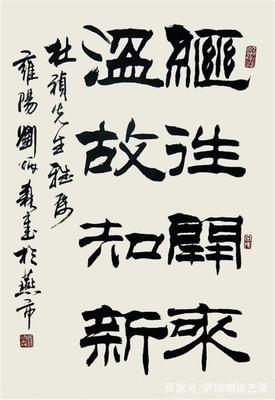 繼往開來
溫故知新
杜禎先生雅屬
雍陽劉炳森書於燕市
百家号/萨培喇谈艺录